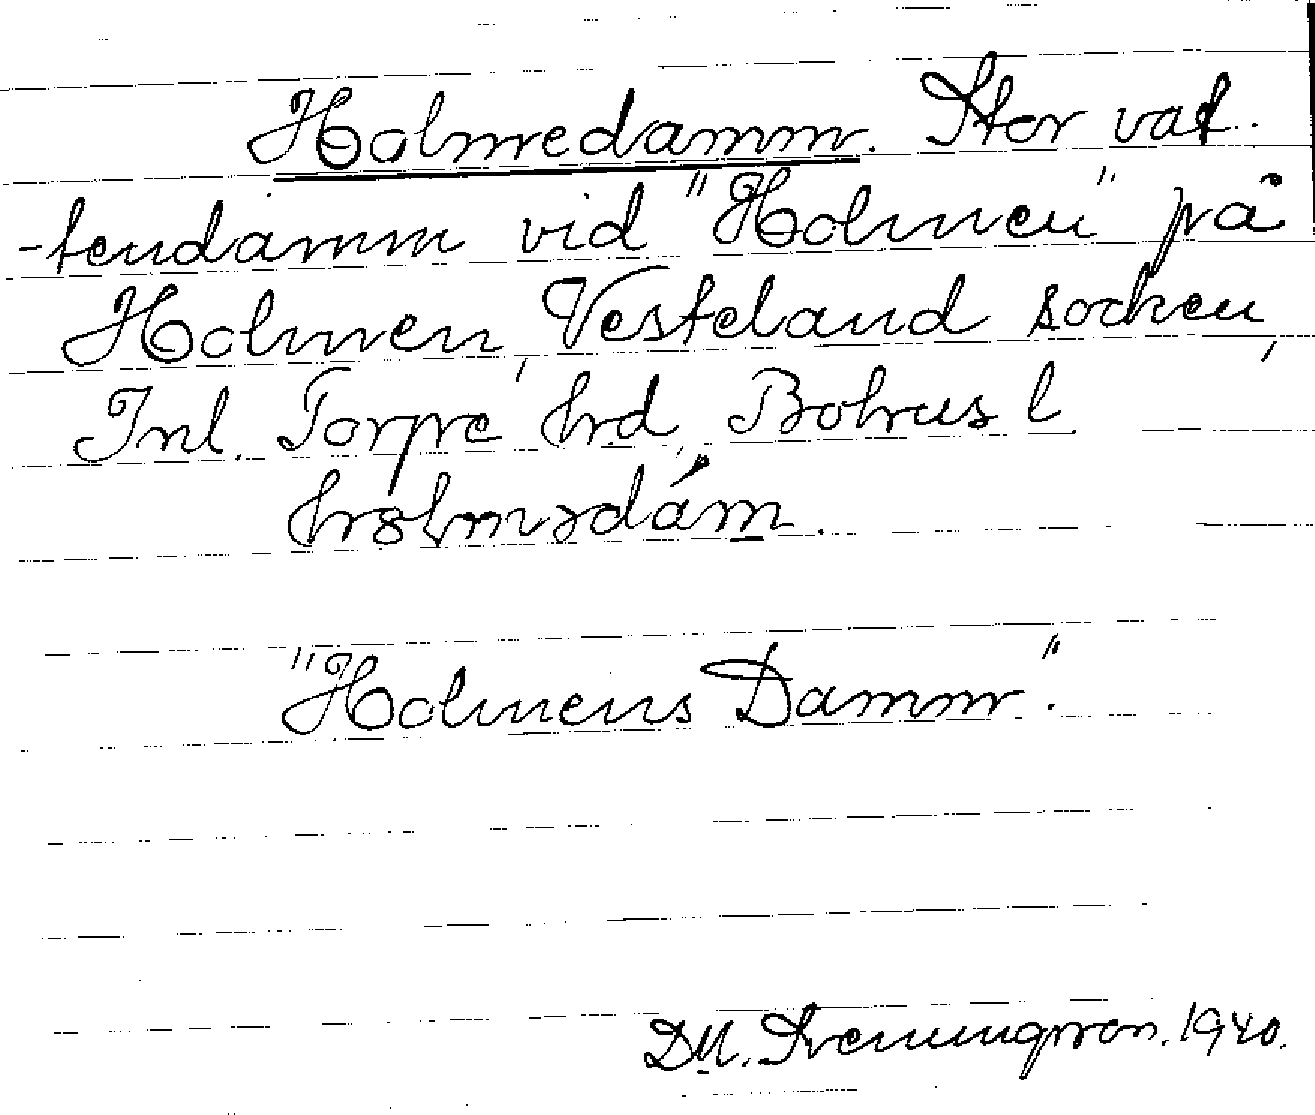 Holmedamm. Stor vat-
-tendamm vid "Holmen" på
Holmen, Vesteland socken,
Inl. Torpe hrd, Bohus l.
"Holmens Damm".
D.M. Sveningsson. 1940.